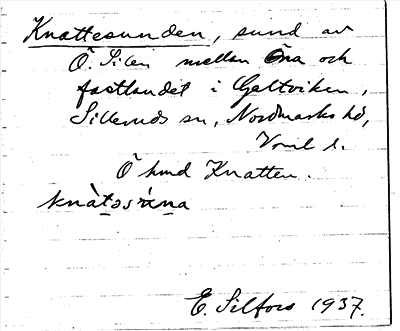 Knattesunden, sund av
Ö. Silen mellan Öna och
fastlandet i Galtviken,
Silleruds sn, Nordmarks hd,
Vrml l.
Ö hmd Knatten.
E. Silfors 1937.